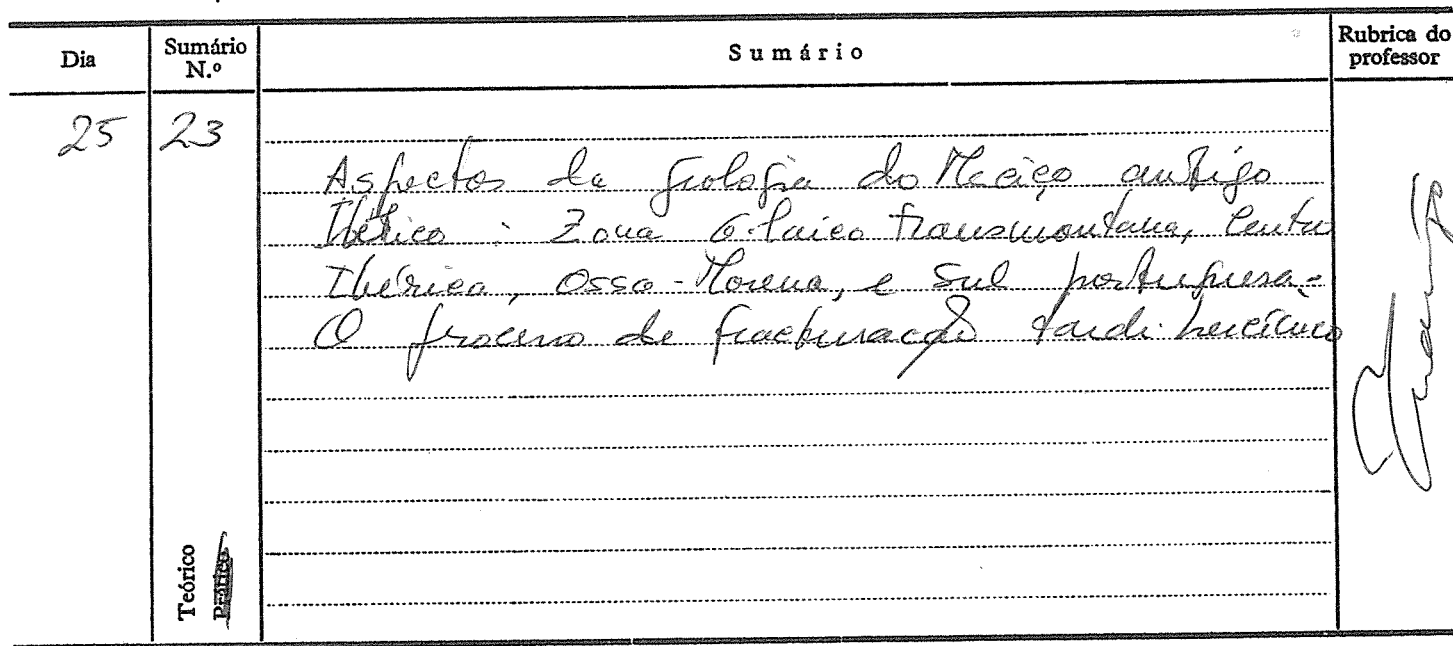 Dia
Sumário
N.º
Sumário
Rubrica do
professor
25
23
Aspectos da geologia do Maciço antigo
Ibérico : Zona Galaico transmontana, Centro
Ibérica, Ossa-Morena, e Sul portuguesa.
O processo de fracturação tardi-hercínico
Teórico
Prático